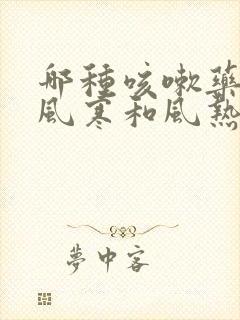 那種咳嗽藥
風寒和風熱
夢中客